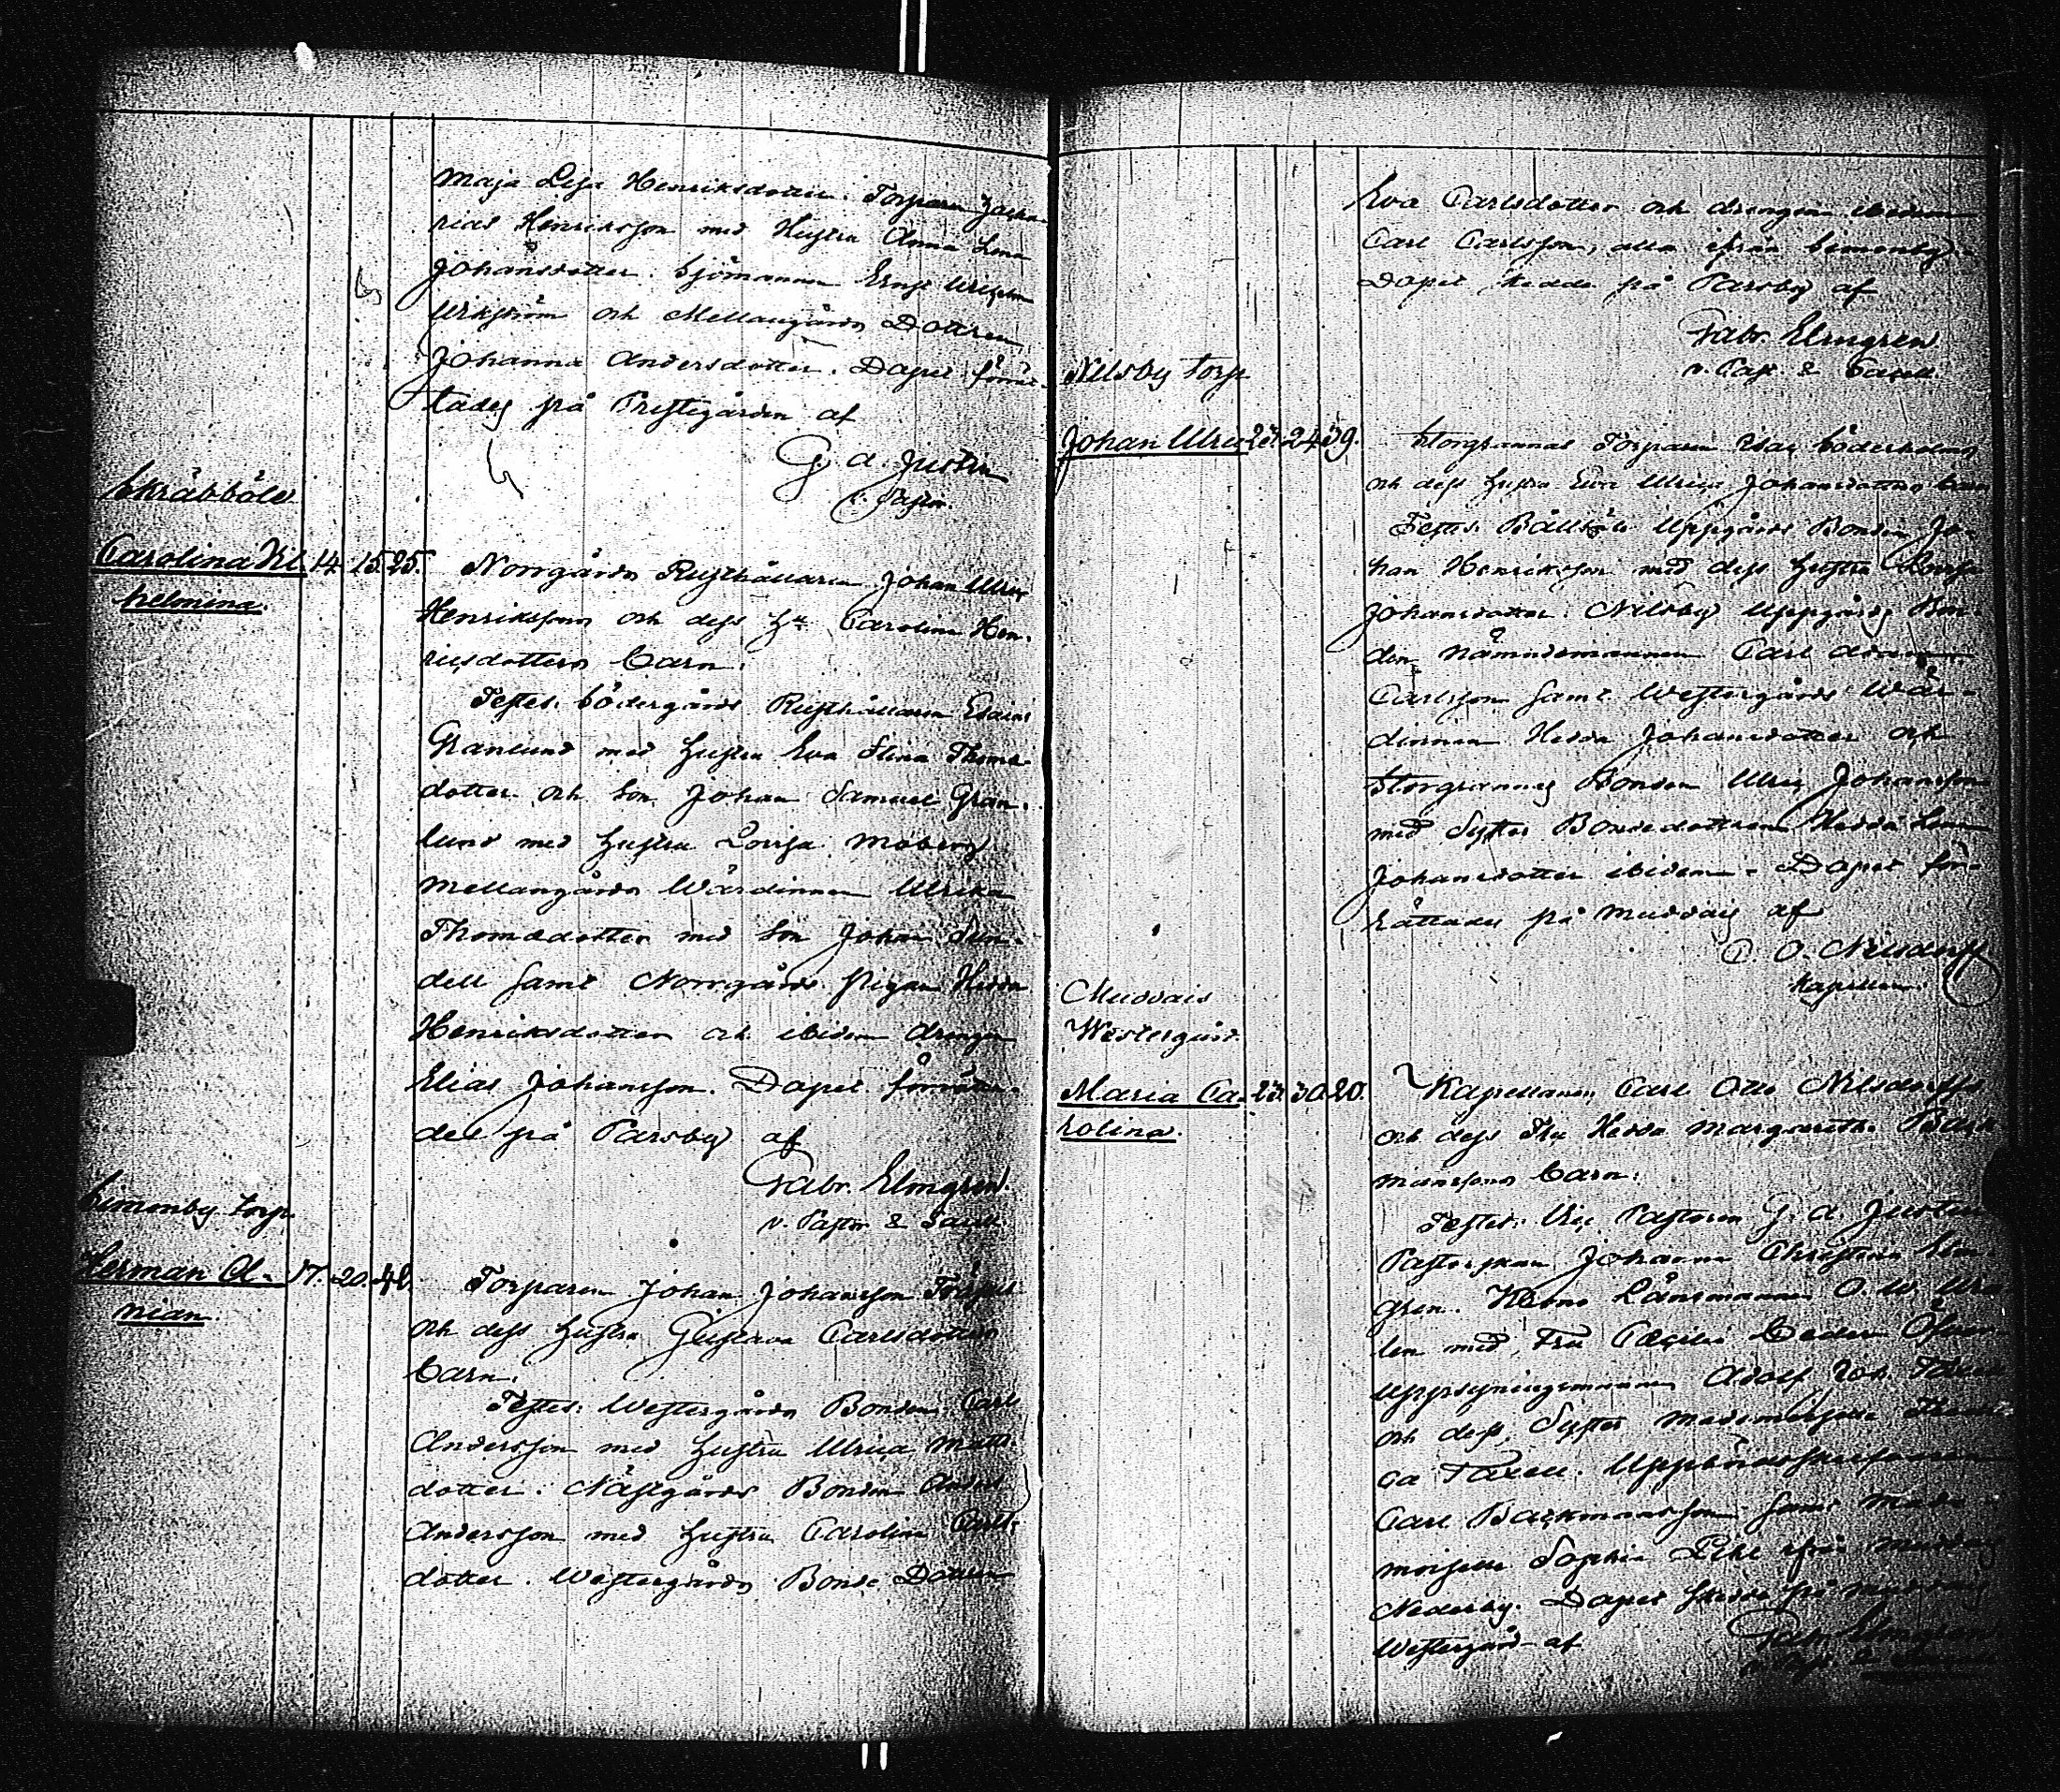 Maja Lisa Henriksdotter. Torparen Zacha-
rias Henriksson med Hustru Anna Lena
Johansdotter. Sjömannen Ernst Wilhelm
Wikström och Mellangårds Dottren
Johanna Andersdotter. Dopet förrät-
tades på Prestegården af
G. A. Justén
v. Pastor.
Skräbböle
Carolina Vil- 14. 15. 25.
helmina.
Norrgårds Rusthållaren Johan Ulric
Henrikssons och dess Hu Carolina Hen-
ricsdotters barn.
Testes: Södergårds Rusthållaren Esaias
Granlund med hustru Eva Stina Thoms-
dotter och Son Johan Samuel Gran-
lund med hustru Lovisa Moberg
Mellangårds Wärdinnan Ulrika
Thomsdotter med Son Johan Sun-
dell samt Norrgårds pigan Hedda
Henriksdotter och ibidem drengen
Elias Johansson. Dopet förrätta-
des på Parsby af
Fabr. Elmgren.
v. Pastor & Sacell.
Simonby torp.
Herman A- 17. 20. 41.
nian.
Torparen Johan Johansson
och dess hustru Gustava Carlsdotters
barn.
Testes: Westergårds Bonden Carl
Andersson med hustru Ulrica Matts-
dotter. Nästgårds Bonden Anders
Andersson med hustru Carolina Carls-
dotter. Westergårds Bonde Dottren
Eva Carlsdotter och drengen ibidem
Carl Carlsson, alla ifrån Simonby.
Dopet skedde på Parsby af
Fabr. Elmgren
v. Past. & Sacell.
Nilsby torp
Johan Ulric 23. 24. 39.
Storgrannas Torparen Isac Söderholms
och dess hustru Eva Ulrica Johansdotters barn
Testes: Bällböle Uppgårds Bonden Jo-
han Henriksson med dess hustru Lovisa
Johansdotter. Nilsby Uppgårds Bon-
den Nämndemannen Carl
Carlsson samt Westergårds Wär-
dinnan Hedda Johansdotter och
Storgrannas Bonden Ulric Johansson
med Syster Bondedottren Hedda Lena
Johansdotter ibidem. Dopet för-
rättades på Muddais af
C. O. Nilsdorff
Kapellan.
Muddais
Westergård.
Maria Ca- 23. 30. 20.
rolina.
Kapellanen Carl Otto Nilsdorffs
och dess Fru Hedda Margaretha Back-
manssons barn.
Testes: Vice Pastoren G. A. Justén
Pastorskan Johanna Christina Elm-
gren. Krono Länsmannen O. W.
len med Fru Cecilia Ceder
Uppsyningsmannen Adolf Joh. Taxell
och dess Syster Mademoiselle
ca Taxell. Uppbördsskrifvaren
Carl Backmansson samt Made-
moiselle Sophia ifrån Muddais
Nederby. Dopet skedde på Muddais
Westergård af
Fabr. Elmgren
v. Past. & Sacell.